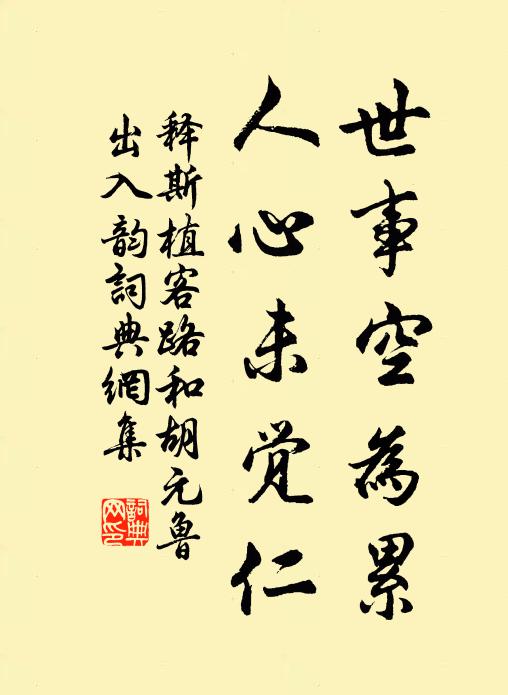 世事空為累
人心未觉仁
释斯植客路和胡元鲁
出入韵詞典網集
詞典
网印